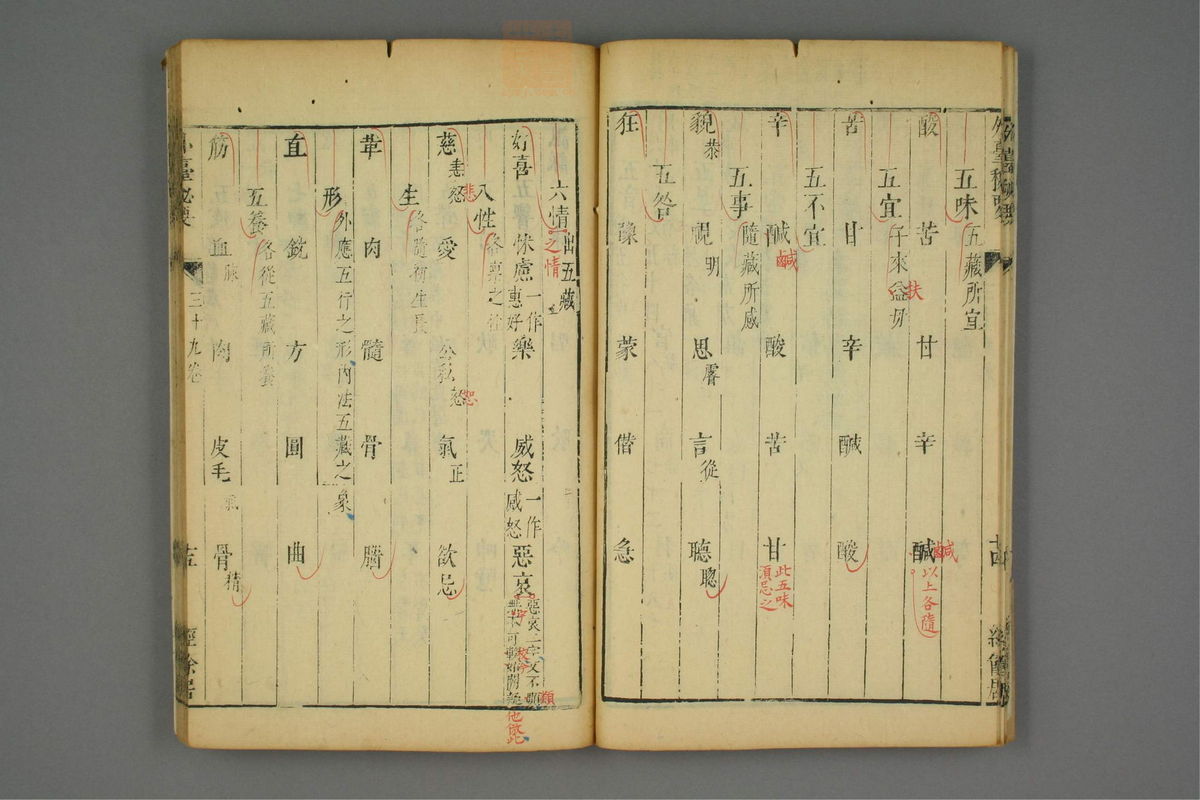 五味五藏所宜
酸 苦 甘 辛 醎鹹以上各隨
五宜子來扶益母
苦 甘 辛 醎 酸
五不宜
辛 醎鹹 酸 苦 甘此五味須忌之
五事隨藏所感
貌恭 視明 思睿 言從 聽聰
五咎
狂 豫 蒙 僭 急
六情出五藏之情
好喜 怵慮一作惠好 樂 威怒一作感怒 惡哀
八性各稟之性
慈恚怒悲 愛 公私怒恕 氣正 欲忌
生各隨初生長
革 肉 髓 骨 腦
形外應五行之形內法五藏之象
直 銳 方 圓 曲
五養各從五藏所養
筋 血脉 肉 皮毛氣 骨精
外臺秘要
三十九卷
十五
經餘居